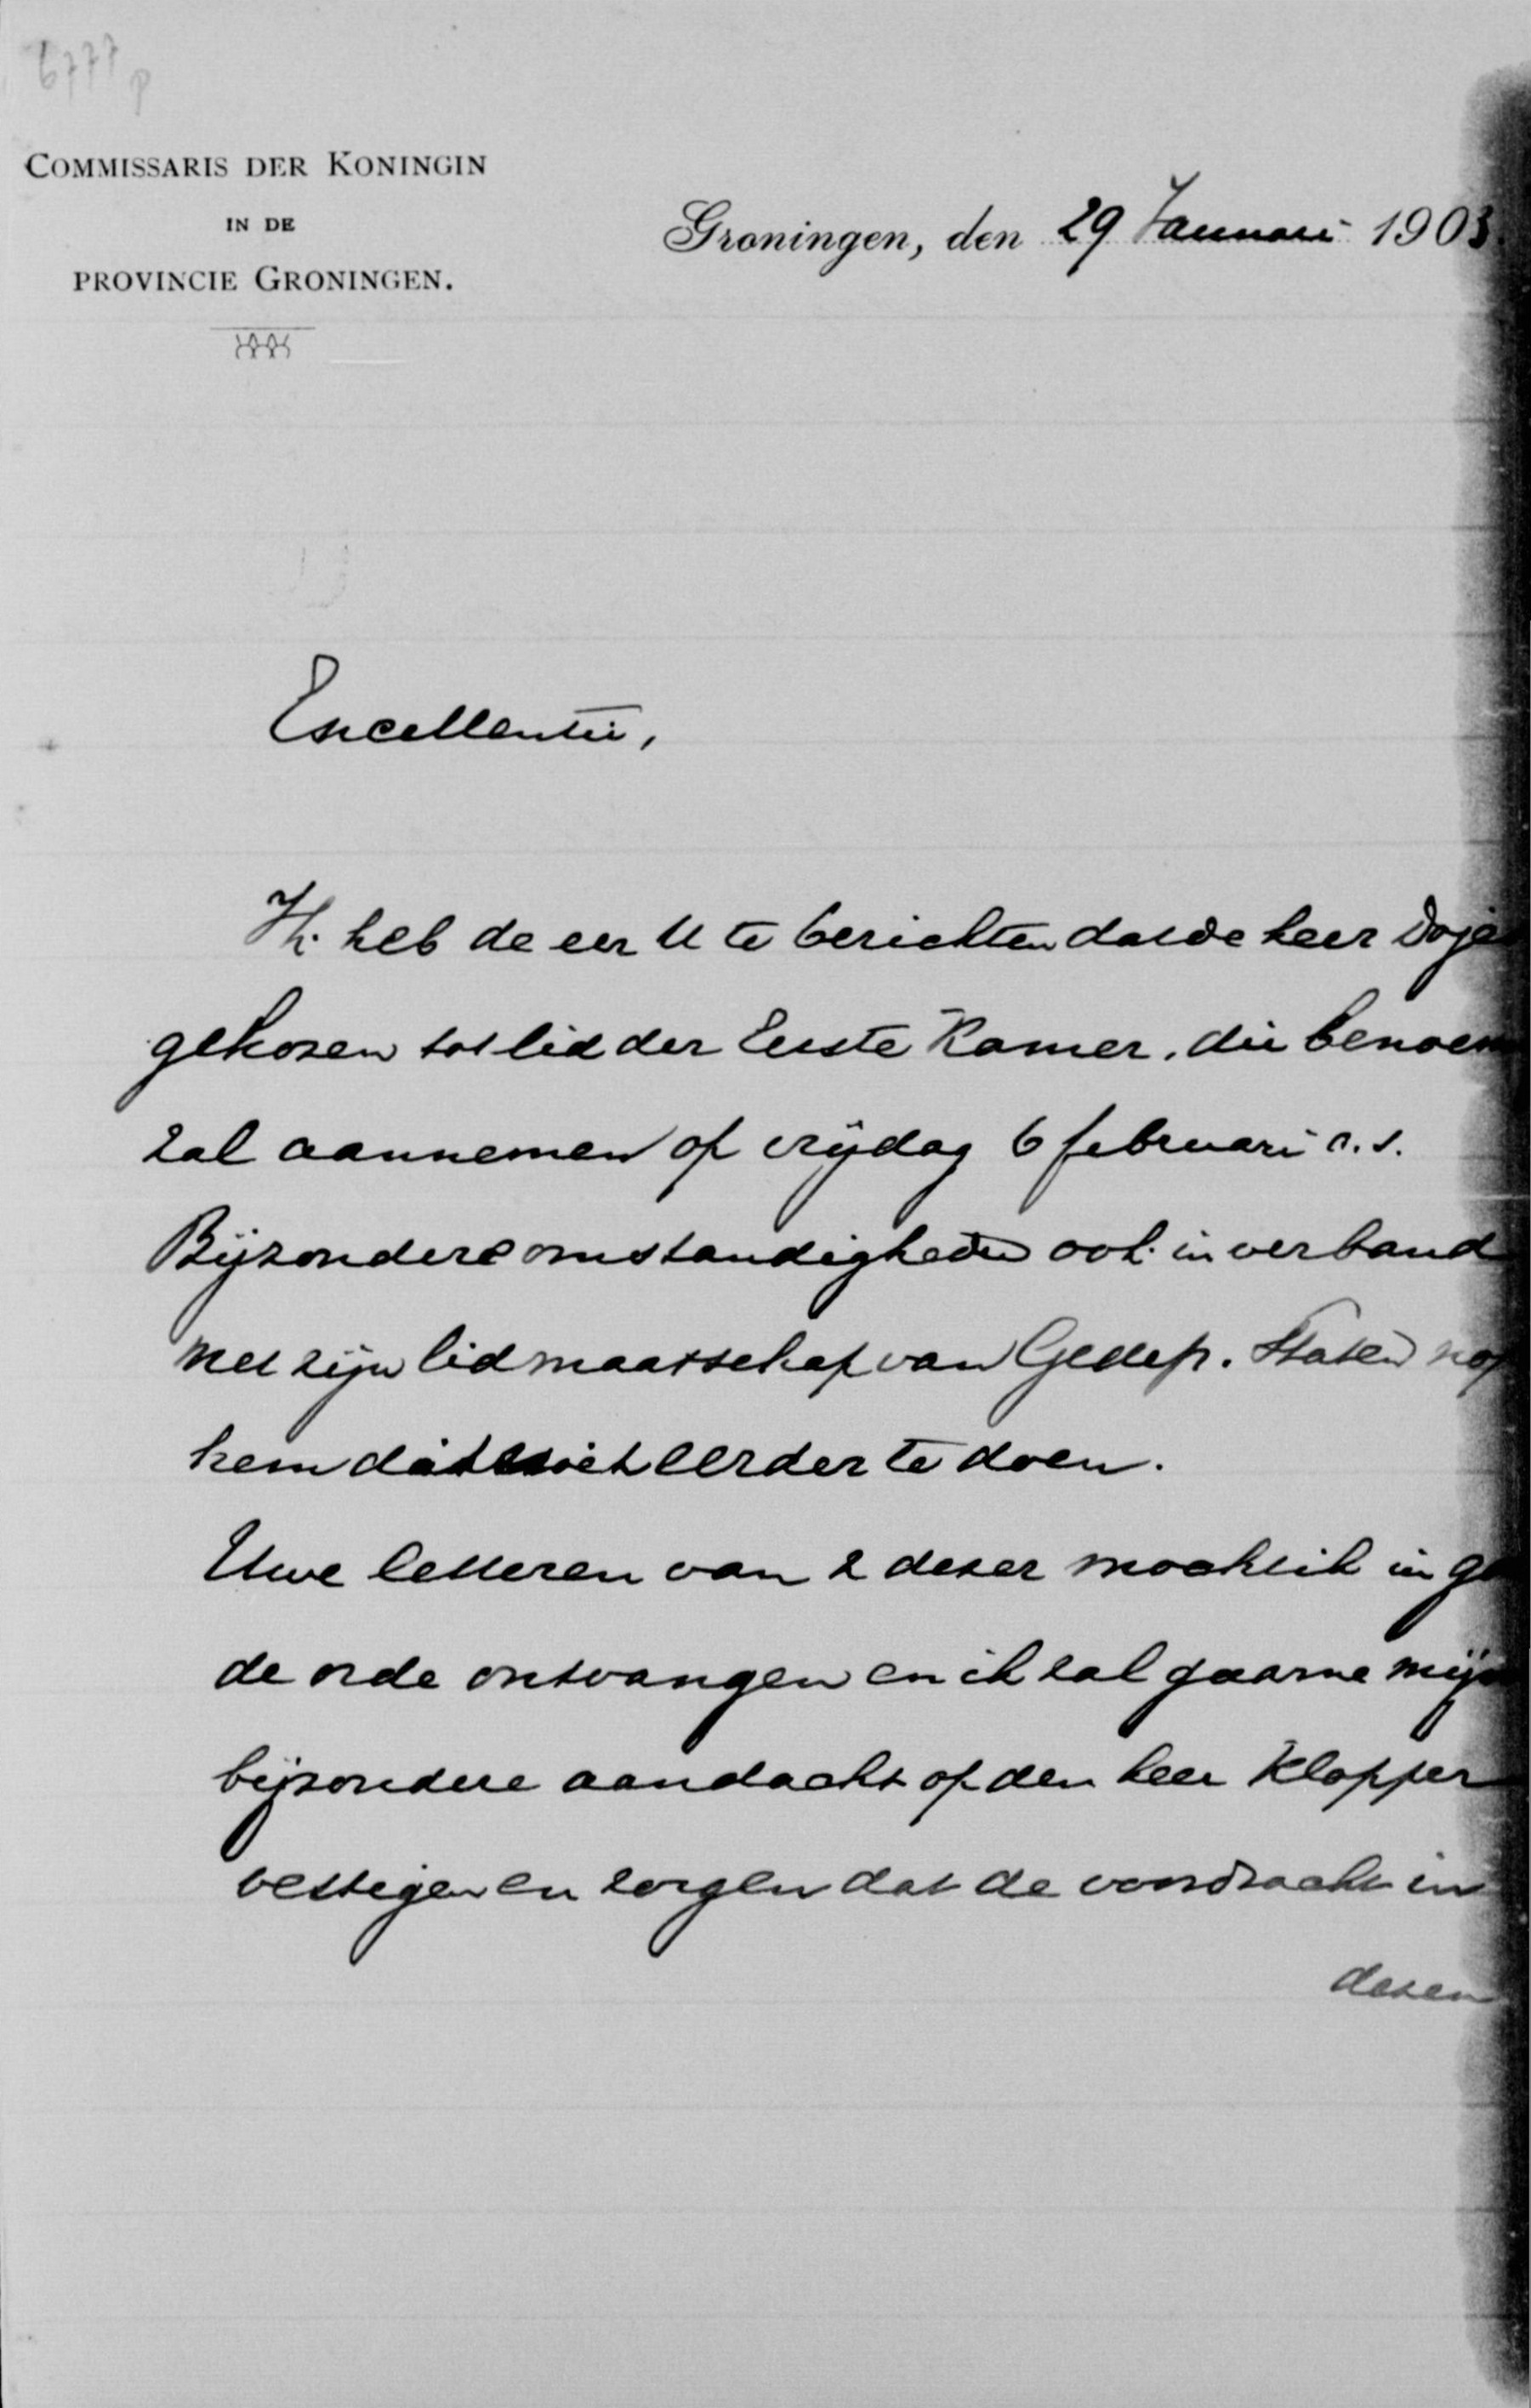 6777 p
COMMISSARIS DER KONINGIN
IN DE
PROVINCIE GRONINGEN.
Groningen, den 29 Januari 1903.
Excellentie,
Ik heb de eer U te berichten dat de heer Doje
gekozen tot lid der Eerste Kamer, die benoem
zal aannemen op vrijdag 6 februari a.s.
Bijzondere omstandigheden ook in verband
met zijn lidmaatschap van Gedep. Staten nop
hem dit niet eerder te doen.
Uwe letteren van 2 dezer mocht ik in go
de orde ontvangen en ik zal gaarne mijn
bijzondere aandacht op den heer Klopper
vestigen en zorgen dat de voordracht in
dezen